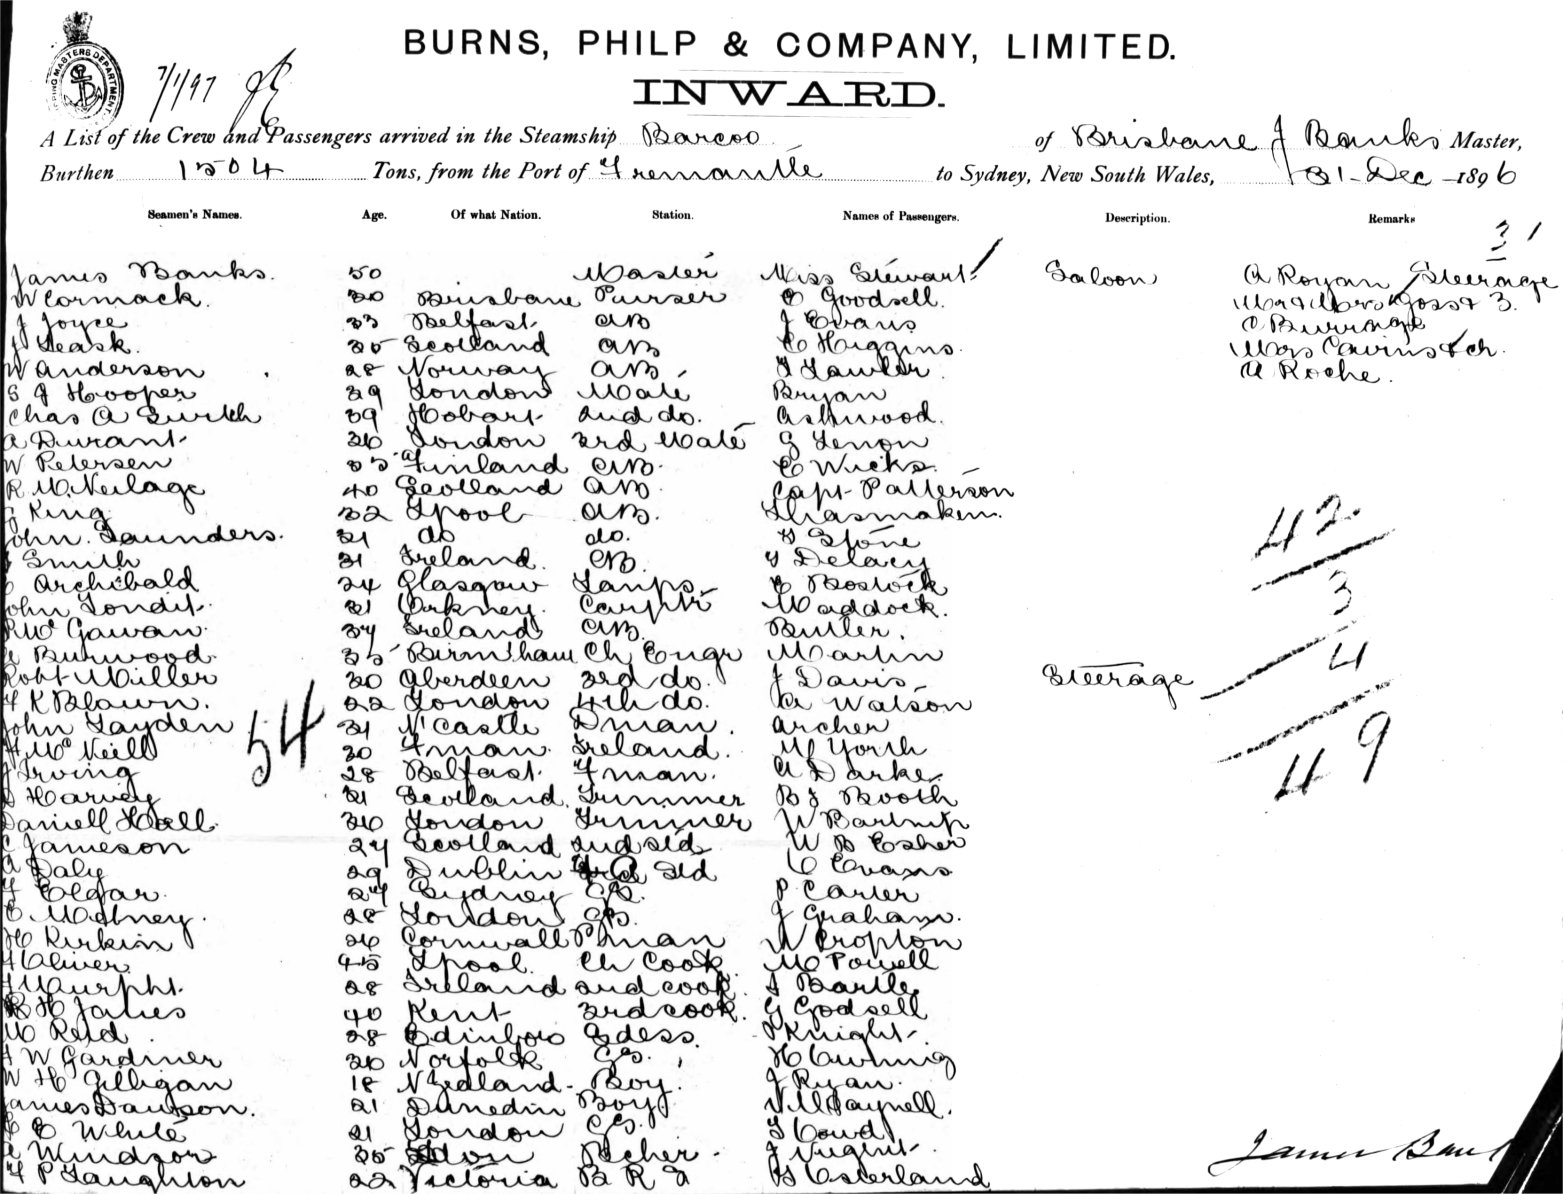 BURNS, PHILP & COMPANY, LIMITED.
INWARD.
7/1/97
A List of the Crew and Passengers arrived in the Steamship Barcoo of Brisbane J Banks Master,
Burthen 1504 Tons, from the Port of Fremantle to Sydney, New South Wales, 31 Dec 1896
Seamen's Names. Age. Of what Nation. Station. Names of Passengers. Description. Remarks
James Banks. 50 Master Miss Stewart Saloon A Royan Steerage
W Cormack. 30 Brisbane Purser C Goodsell. Mr & Mrs Goss & 3.
J Joyce 33 Belfast AB J Evans
J Leask. 35 Scotland AB C Higgins. Mrs Cairns & ch.
W Anderson 28 Norway AB F Lawler. A Roche.
S J Hooper 39 London Mate Bryan
Chas A 39 Hobart 2nd do. Ashwood.
A Durant 26 London 3rd Mate G Lenon
W Petersen 35 Finland AB. E Wicks.
R McNeilage 40 Scotland AB. Capt Patterson
King 32 Lpool AB.
John Saunders. 31 do do. Stone
Smith 31 Ireland. AB. Delacy
Archibald 24 Glasgow Lamps. E Bostock
John 31 Orkney. Carptr Maddock.
McGowan 37 Ireland AB. Butler.
Burwood 35 Birmham Ch Engr Martin
Robt Miller 30 Aberdeen 3rd do. J Davis Steerage
22 London 4th do. A Watson
John Layden 31 N'Castle Dman. Archer
McNeill 30 Fman. Ireland. M Yorth
J Irving 28 Belfast. Fman. A Darke
Harvey 31 Scotland. Trimmer B J Booth
Daniell Hall. 36 London Trimmer W
C Jameson 27 Scotland 2nd Std W B Esher
A Daly 29 Dublin Std C Evans
F Elgar. 27 Sydney GS. P Carter
28 London GS. J Graham.
H Kirkin 26 Cornwall Pman W Cropton
Oliver. 45 Lpool. Ch Cook M Powell
28 Ireland 2nd cook. S Bartle
R H James 40 Kent 3rd cook. G Godsell
M Reid 28 Edinboro Sdess. P Knight
W Gardiner 36 Norfolk GS.
W H Gilligan 18 N Zealand Boy. J Ryan.
James Dawson. 21 Dunedin Boy
C E White 21 London GS.
Windsor 35 Btcher. J Nugent
P Laughton 22 Victoria
31
54
42.
3
4
49
James